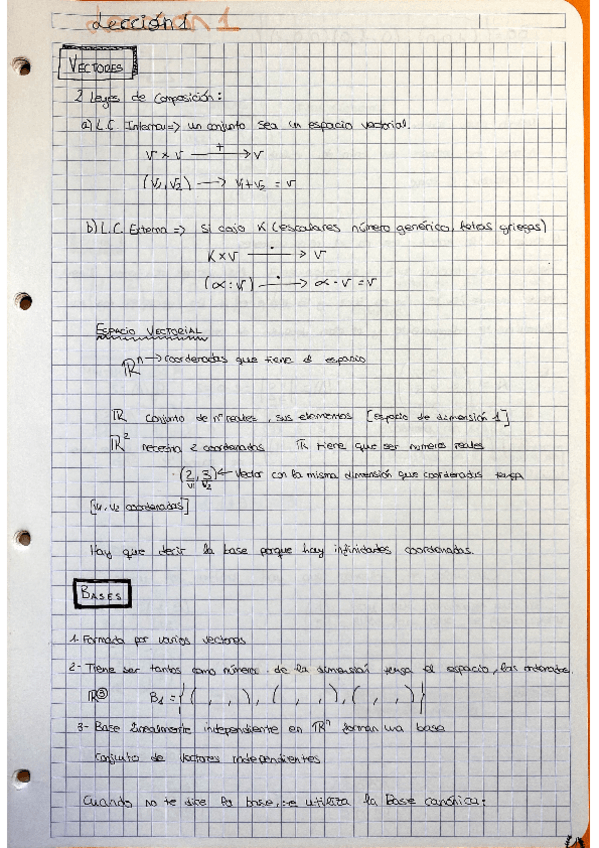 Lección 1
VECTORES
2 leyes de composición:
a) L.C. Interna => un conjunto sea un espacio vectorial.
V x V —+—> V
(V1, V2) —> V1+V2 = V
b) L.C. Externa => Si cojo K (escalares número genérico, letras griegas)
K x V —·—> V
(α : V) —·—> α · V = V
ESPACIO VECTORIAL
ℝⁿ -> coordenadas que tiene el espacio
ℝ conjunto de nº reales, sus elementos [espacio de dimensión 1]
ℝ² necesita 2 coordenadas ℝ tiene que ser números reales
· (2, 3) <- Vector con la misma dimensión que coordenadas tenga
V1 V2
[V1, V2 coordenadas]
Hay que decir la base porque hay infinidades coordenadas.
BASES
1- Formada por varios vectores
2- Tiene ser tantos como número de la dimensión tenga el espacio, las ordenadas.
ℝ③ B1 = {( , , ), ( , , ), ( , , )}
3- Base linealmente independiente en ℝⁿ forman una base
Conjunto de vectores independientes
Cuando no te dice la base, se utiliza la Base canónica: